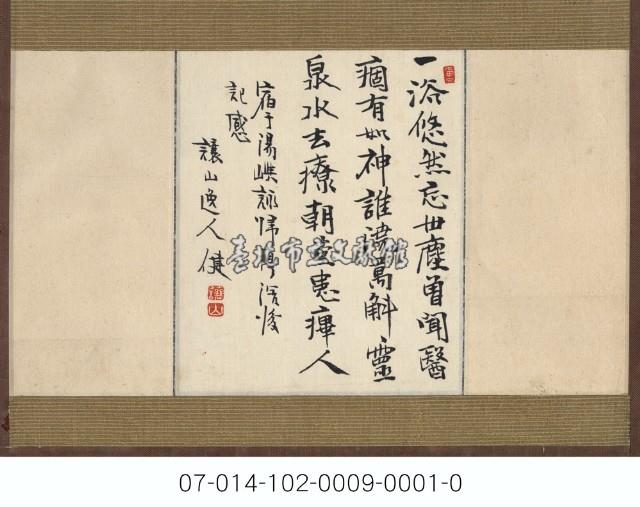 一浴悠然忘世塵曾聞醫
痼有如神誰萬斛靈
泉水去療朝患人
宿于湯嶼詠歸亭浴後
記感
讓山逸人健
臺北市立文獻館
07-014-102-0009-0001-0